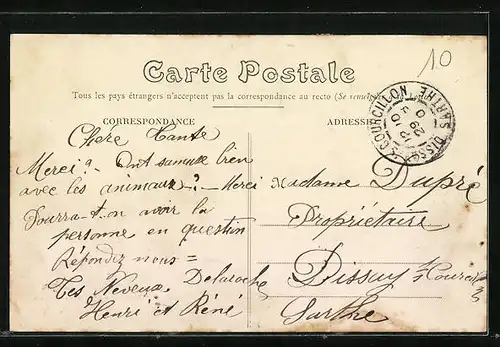 10
Carte Postale
Tous les pays étrangers n'acceptent pas la correspondance au recto (Se renseigner
CORRESPONDANCE
ADRESSE
DISSAY-S-COURCILLON SARTHE
Chère Tante
Merci ? - Ont samusé bien
avec les animaux ? - Merci
Pourra-t-on avoir la
personne en question
Répondez nous =
Tes Neveux Delaroche
Henri et Réné
Madame Dupré
Propriétaire
Dissay s/s Courcillon
Sarthe